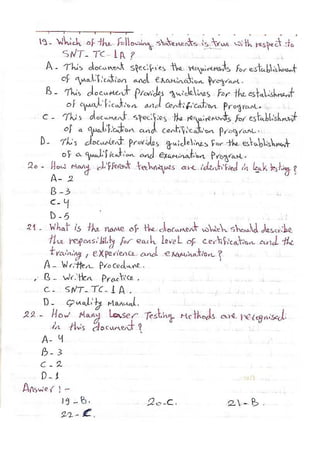 19- Which of the following statements is true with respect to
SNT-TC-1A?
A- This document specifies the requirements for establishment
of qualification and examination program.
B- This document provides guidelines for the establishment
of qualification and certification Program.
C- This document specifies the requirements for establishment
of a qualification and certification Program.
D- This document provides guidelines for the establishment
of a qualification and examination Program.
20- How many different techniques are identified in leak testing?
A- 2
B- 3
C- 4
D- 5
21- What is the name of the document which should describe
the responsibility for each level of certification and the
training, experience and examination?
A- Written Procedure.
B- Written Practice.
C- SNT-TC-1A.
D- Quality Manual.
22- How Many Laser Testing Methods are recognised
in this document?
A- 4
B- 3
C- 2
D- 1
Answer:-
19-B. 20-C. 21-B.
22-C.